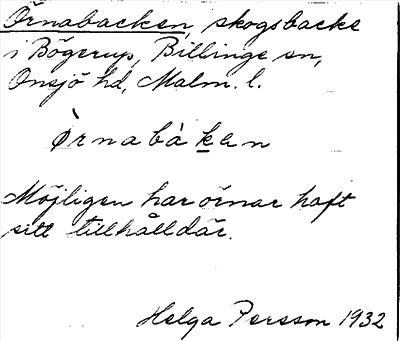 Örnabacken, skogsbacke
i Bögerup, Billinge sn,
Onsjö hd, Malm. l.
Ö̀rnabàken
Möjligen har örnar haft
sitt tillhåll där.
Helga Persson 1932